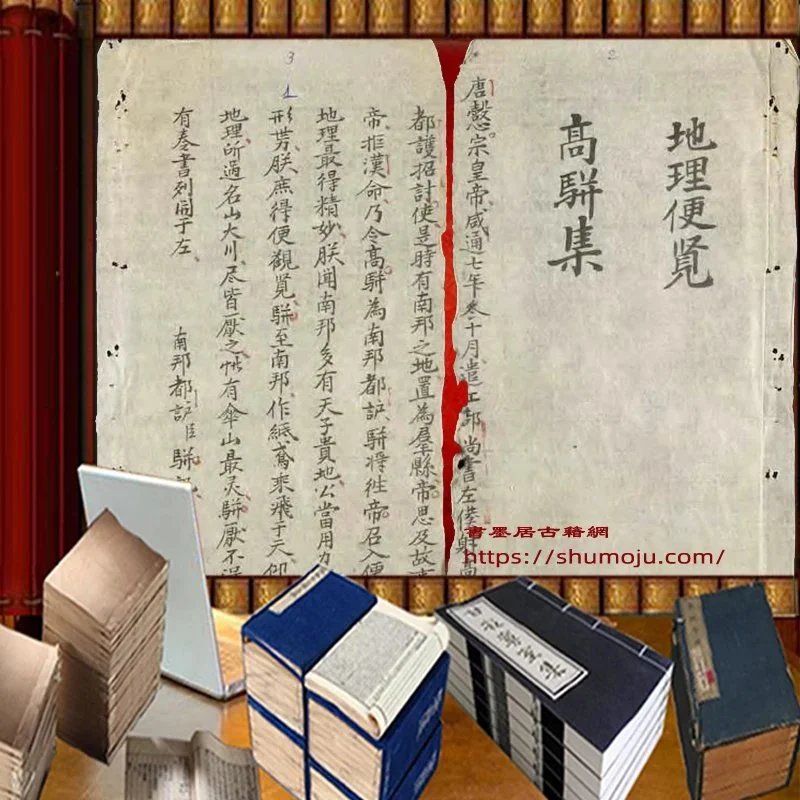 地理便覧
高駢集
唐懿宗皇帝咸通七年叁十月遣工部尚書左僕射高
都護招討使是時有南邦之地置為郡縣帝思及故
帝拒漢命乃令高駢為南邦都護駢將往帝召入便
地理最得精妙朕聞南邦多有天子貴地公當用力
形势朕庶得便觀覽駢至南邦作紙鳶乘飛于天仰
地理所過名山大川尽皆厭之惟有傘山最灵駢厭不
有奏書列開于左
南邦都护臣駢
3
1
2
書墨居古籍網
https://shumoju.com/